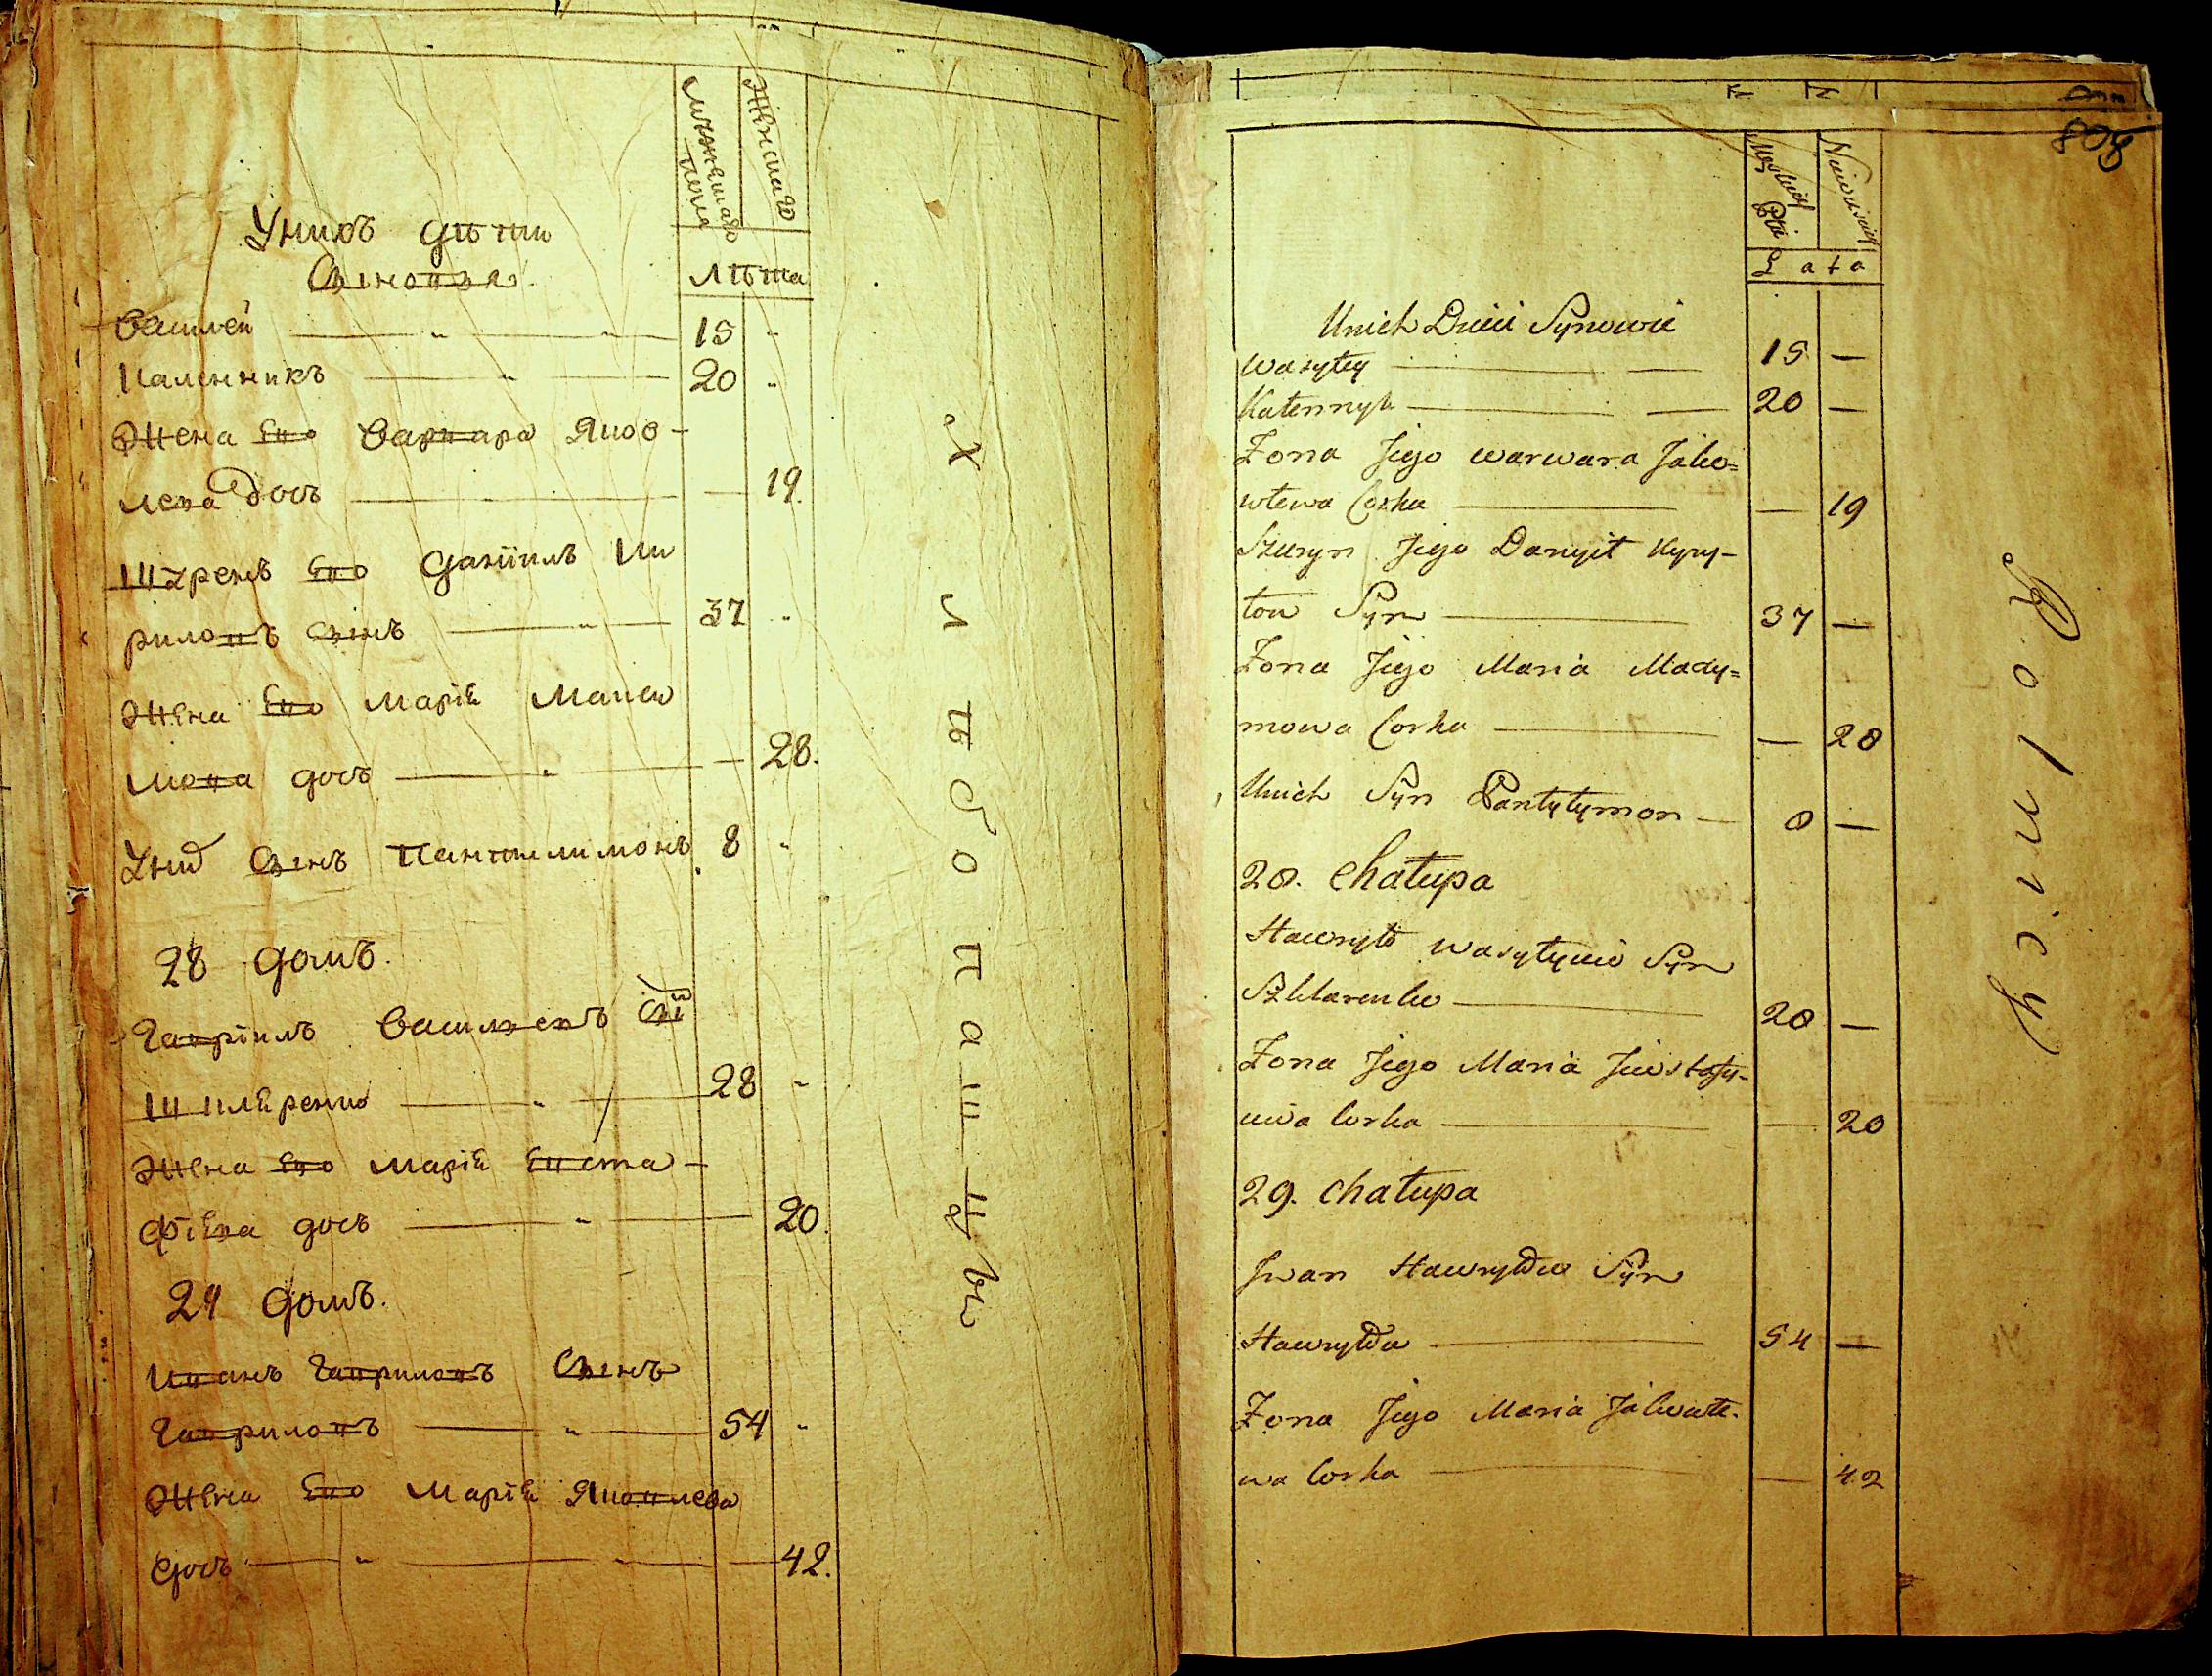 Мужеска пола
Женска
Лѣта
У нихъ дѣти
Синовья
Василей 15
Каленникъ 20
Жена Его Варвара Яков-
лева дочь 19.
Шуренъ Его Даніилъ Ки
риловъ Синъ 37
Жена Его Марія Макси
мова дочь 28.
У них Синъ Пантилимонъ 8
28 домъ.
Гавріилъ Васильевъ Сы
Шкляренко 28
Жена Его Марія Евста-
фіева дочь 20.
29 домъ.
Иванъ Гавриловъ Синъ
Гавриловъ 54
Жена Его Марія Яковлева
дочь 42.
Хлѣбопашцы
808
Męskiej Płci
Niewieściej
Lata
Unich Dzieci Synowie
Wasyley 15 —
Kalennyk 20 —
Żona Jego Warwara Jako=
wlewa Corka — 19
Szuryn Jego Danyił Kyry-
łow Syn 37 —
Żona Jego Maria Maxy=
mowa Corka — 28
Unich Syn Pantyłymon 8 —
28. Chałupa
Hawryło Wasylyiw Syn
Szklarenko 28 —
Żona Jego Maria Jiwstafy-
iwa Corka — 20
29. Chałupa
Iwan Hawryłow Syn
Hawryłow 54 —
Żona Jego Maria Jakowle-
wa Corka — 42
Rolnicy